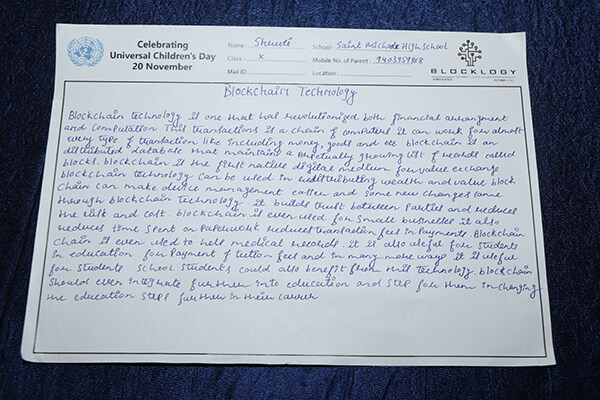 Celebrating
Universal Children's Day
20 November
Name Shruti School Saint Michael High School
Class X Mobile No. of Parent 9403959968
Mail ID Location
BLOCKLOGY
Blockchain Technology
Blockchain technology is one that has revolutionized both financial arrangment
and computation This transactions is a chain of computers it can work for almost
every type of transaction like including money, goods and etc. blockchain is an
distributed database that maintains a perpetually growing list of records called
blocks. blockchain is the first native digital medium for value exchange
blockchain technology can be used in redistributing wealth and value block
chain can make device management easier and some new changes come
through blockchain technology. it builds trust between parties and reduces
the risk and cost. blockchain is even used for small businesses it also
reduces time spent on paperwork reduces transaction fees in payments. Blockchain
chain is even used to help medical records. it is also useful for students
in education. for payment of tution fees and in many more ways it is useful
for students. school students could also benefit from this technology. blockchain
should even integrate further into education and step for them in changing
the education steps further in their career